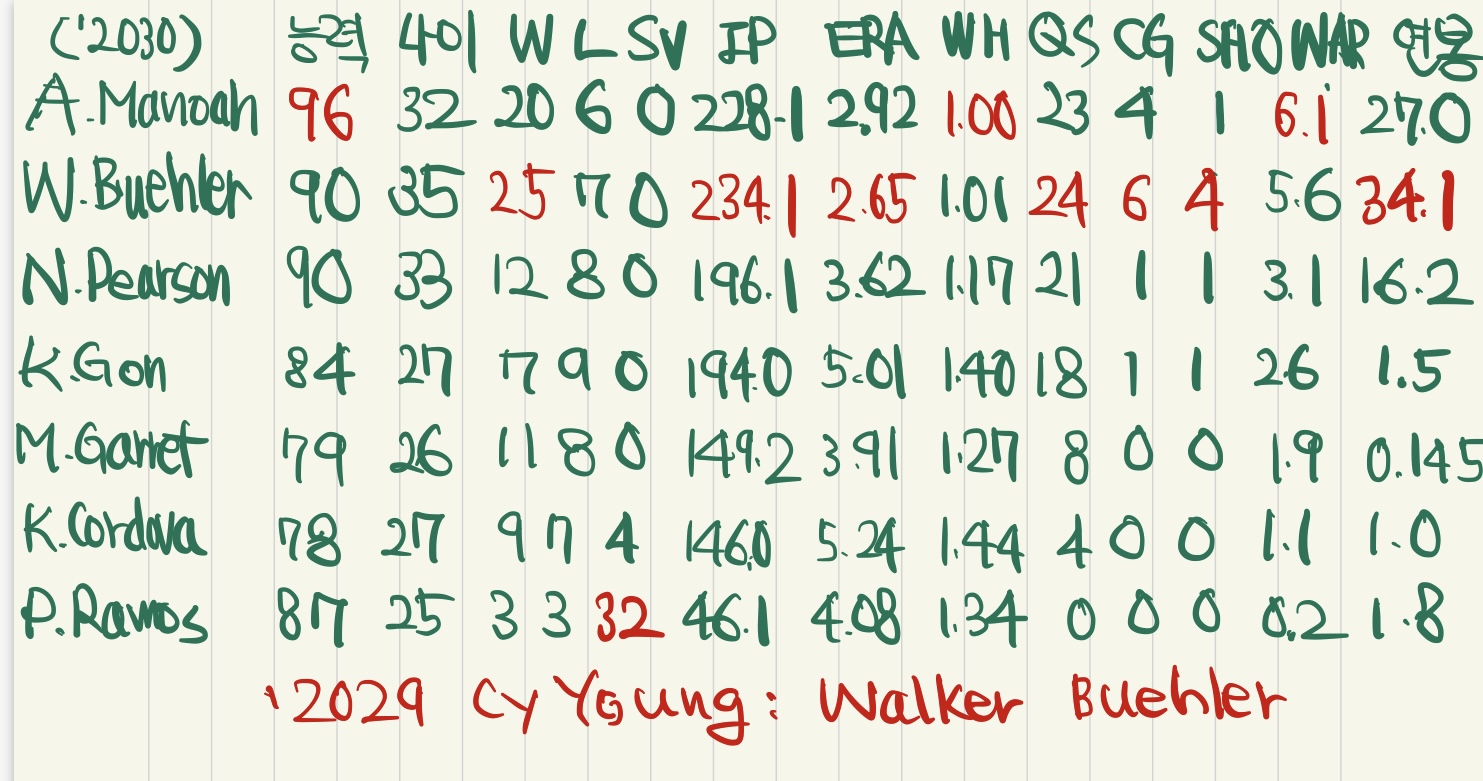 ('2030) 능력 나이 W L SV IP ERA WH QS CG SHO WAR 연봉
A.Manoah 96 32 20 6 0 228.1 2.92 1.00 23 4 1 6.1 27.0
W.Buehler 90 35 25 7 0 234.1 2.65 1.01 24 6 4 5.6 34.1
N.Pearson 90 33 12 8 0 196.1 3.62 1.17 21 1 1 3.1 16.2
K.Gon 84 27 7 9 0 194.0 5.01 1.40 18 1 1 2.6 1.5
M.Garret 79 26 11 8 0 149.2 3.91 1.27 8 0 0 1.9 0.145
K.Cordova 78 27 9 7 4 146.0 5.24 1.44 4 0 0 1.1 1.0
P.Ramos 87 25 3 3 32 46.1 4.08 1.34 0 0 0 0.2 1.8
'2029 Cy Young: Walker Buehler